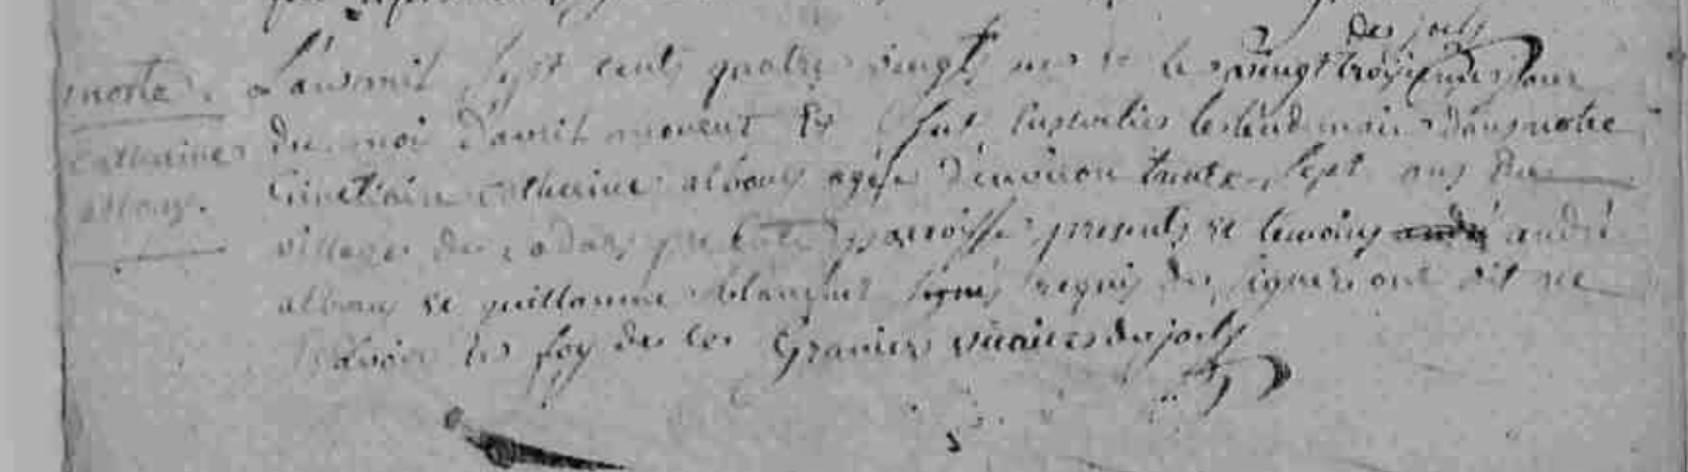 des jols
morte. L'an mil sept cents quatre vingt un et le vingt troisieme jour
Catherine du moi d'avril mourut et fut ensevelies le lendemain dans notre
albouy. Cimetiere catherine albouy agée d'environ trente sept ans du
village de presente parroisse presents et temoins andré andré
albouy et guillaume requis de signer ont dit ne
savoir en foy de ce Granier vicaire des jols